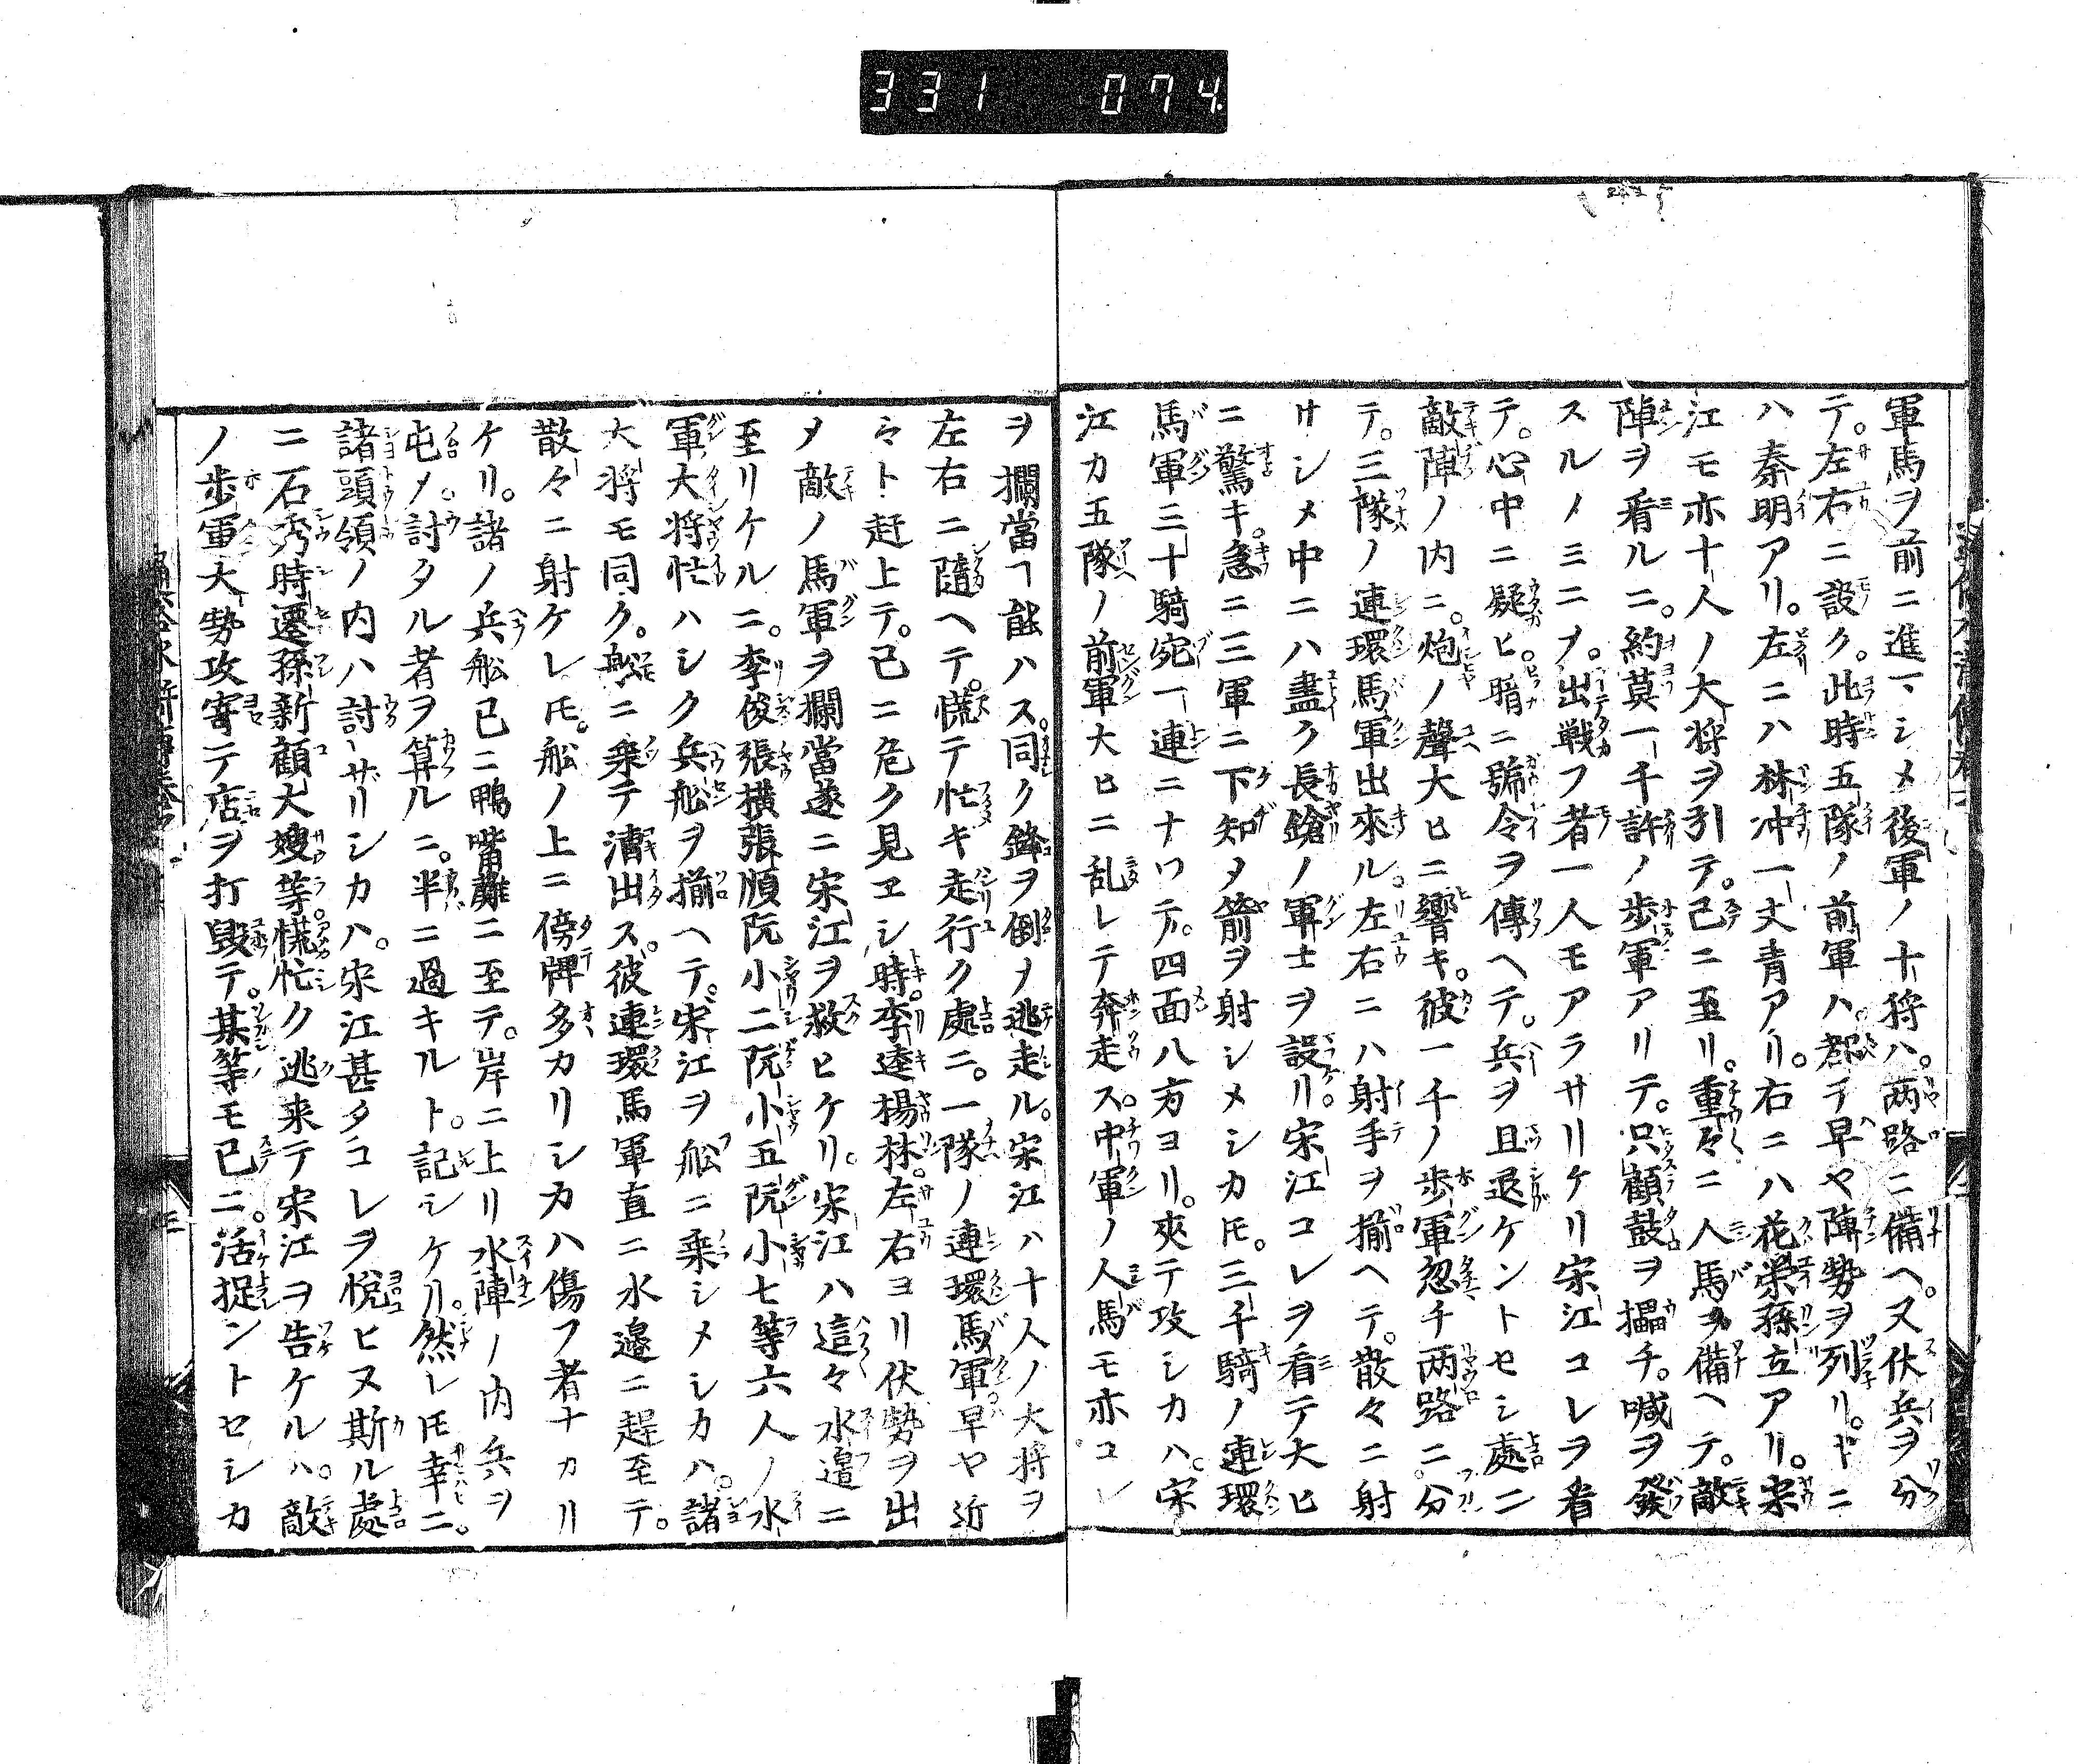 331 074
軍馬ヲ前ニ進マシメ後軍ノ十将ハ。両路ニ備ヘ。又伏兵ヲ分
テ。左右ニ設ク。此時五隊ノ前軍ハ。都テ早ヤ陣勢ヲ列リ。ヤニ
ハ秦明アリ。左ニハ林冲一丈青アリ。右ニハ花榮孫立アリ。宋
江モ亦十人ノ大将ヲ引テ。已ニ至リ。重々ニ人馬ヲ備ヘテ。敵
陣ヲ看ルニ。約莫一千許ノ歩軍アリテ。只顧鼓ヲ擂チ。喊ヲ發
スルノミニノ。出戦フ者一人モアラサリケリ宋江コレヲ看
テ。心中ニ疑ヒ。暗ニ號令ヲ傳ヘテ。兵ヲ且退ケントセシ處ニ
敵陣ノ内ニ。炮ノ聲大ヒニ響キ。彼一千ノ歩軍忽チ両路ニ分
テ。三隊ノ連環馬軍出來ル。左右ニハ射手ヲ揃ヘテ。散々ニ射
サシメ中ニハ盡ク長鎗ノ軍士ヲ設リ。宋江コレヲ看テ大ヒ
ニ驚キ。急ニ三軍ニ下知メ箭ヲ射シメシカ𪜈。三千騎ノ連環
馬軍三十騎宛一連ニナツテ。四面八方ヨリ。夾テ攻シカハ。宋
江カ五隊ノ前軍大ヒニ乱レテ奔走ス。中軍ノ人馬モ亦コレ
ヲ攔當ヿ能ハス。同ク鋒ヲ倒メ逃走ル。宋江ハ十人ノ大将ヲ
左右ニ隨ヘテ。慌テ忙キ走行ク處ニ。一隊ノ連環馬軍早ヤ近
々ト赶上テ。已ニ危ク見エシ時。李逵楊林。左右ヨリ伏勢ヲ出
メ敵ノ馬軍ヲ攔當遂ニ宋江ヲ救ヒケリ。宋江ハ這々水邉ニ
至リケルニ。李俊張横張順阮小二阮小五阮小七等六人ノ水
軍大将忙ハシク兵舩ヲ揃ヘテ。宋江ヲ舩ニ乗シメシカハ。諸
大将モ同ク。舩ニ乗テ漕出ス。彼連環馬軍直ニ水邉ニ趕至テ。
散々ニ射ケレ𪜈。舩ノ上ニ傍牌多カリシカハ傷フ者ナカリ
ケリ。諸ノ兵舩已ニ鴨嘴灘ニ至テ。岸ニ上リ水陣ノ内兵ヲ
屯メ。討タル者ヲ算ルニ。半ニ過キルト。記シケリ。然レ𪜈幸ニ。
諸頭領ノ内ハ討サリシカハ。宋江甚タコレヲ悦ヒヌ斯ル處
ニ石秀時遷孫新顧大嫂等慌忙ク逃来テ宋江ヲ告ケルハ。敵
ノ歩軍大勢攻寄テ店ヲ打毀テ。某等モ已ニ。活捉ントセシカ